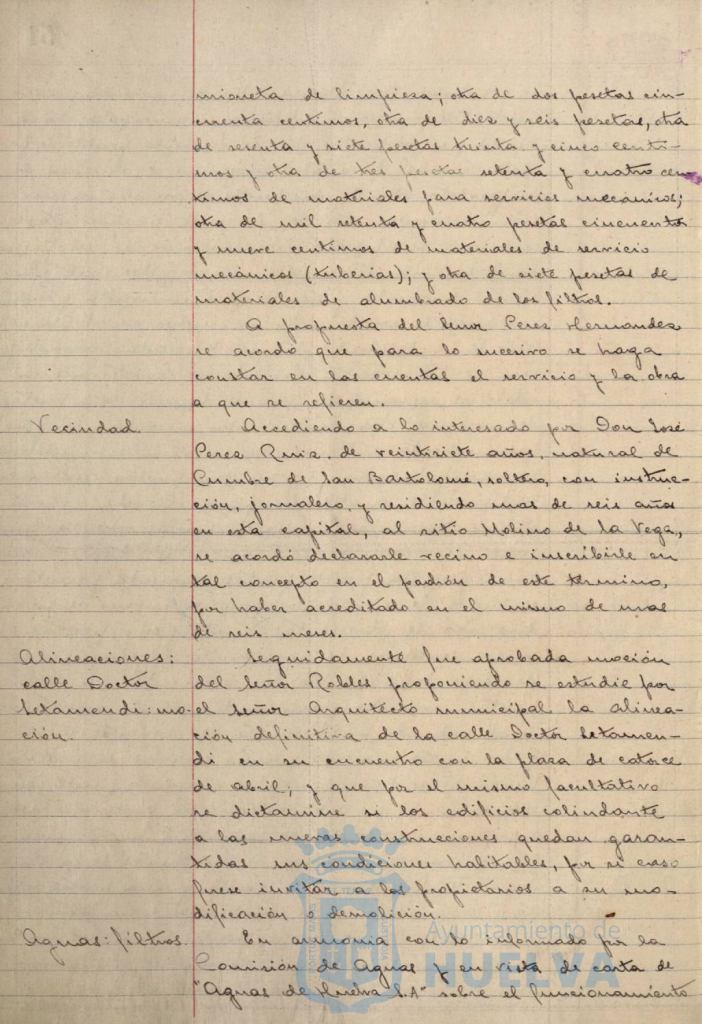 mioneta de limpieza; otra de dos pesetas cin-
cuenta centimos, otra de diez y seis pesetas, otra
de sesenta y siete pesetas treinta y cinco centi-
mos y otra de tres pesetas setenta y cuatro cen-
timos de materiales para servicios mecanicos;
otra de mil setenta y cuatro pesetas cincuenta
y nueve centimos de materiales de servicio
mecánicos (tuberias); y otra de siete pesetas de
materiales de alumbrado de los filtros.
A propuesta del Señor Perez Hernandez
se acordo que para lo sucesivo se haga
constar en las cuentas el servicio y la obra
a que se refieren.
Vecindad.
Accediendo a lo interesado por Don José
Perez Ruiz, de veintisiete años, natural de
Cumbre de San Bartolomé, soltero, con instruc-
ción, jornalero, y residiendo mas de seis años
en esta capital, al sitio Molino de la Vega,
se acordó declararle vecino e inscribirle en
tal concepto en el padrón de este termino,
por haber acreditado en el mismo de mas
de seis meses.
Alineaciones:
calle Doctor
Letamendi: mo-
ción.
Seguidamente fue aprobada moción
del Señor Robles proponiendo se estudie por
el Señor Arquitecto municipal la alinea-
ción definitiva de la calle Doctor Letamen-
di en su encuentro con la plaza de catorce
de abril; y que por el mismo facultativo
se dictamine si los edificios colindante
a las nuevas construcciones quedan garan-
tidas sus condiciones habitables, por si caso
fuese invitar a los propietarios a su mo-
dificación o demolición.
Aguas: filtros.
En armonia con lo informado por la
Comisión de Aguas y en vista de carta de
"Aguas de Huelva S.A" sobre el funcionamiento
Ayuntamiento de
HUELVA